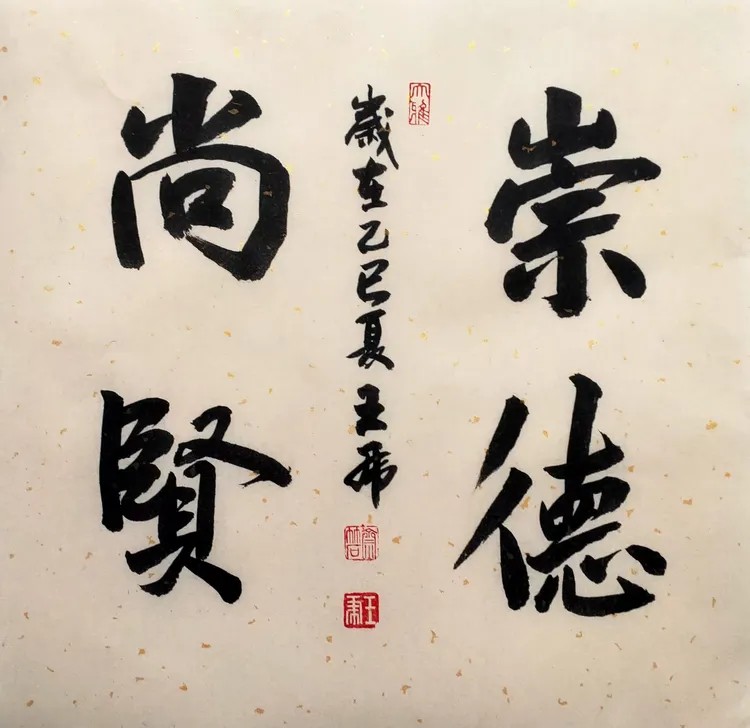 崇德
尚賢
歲在乙巳夏王